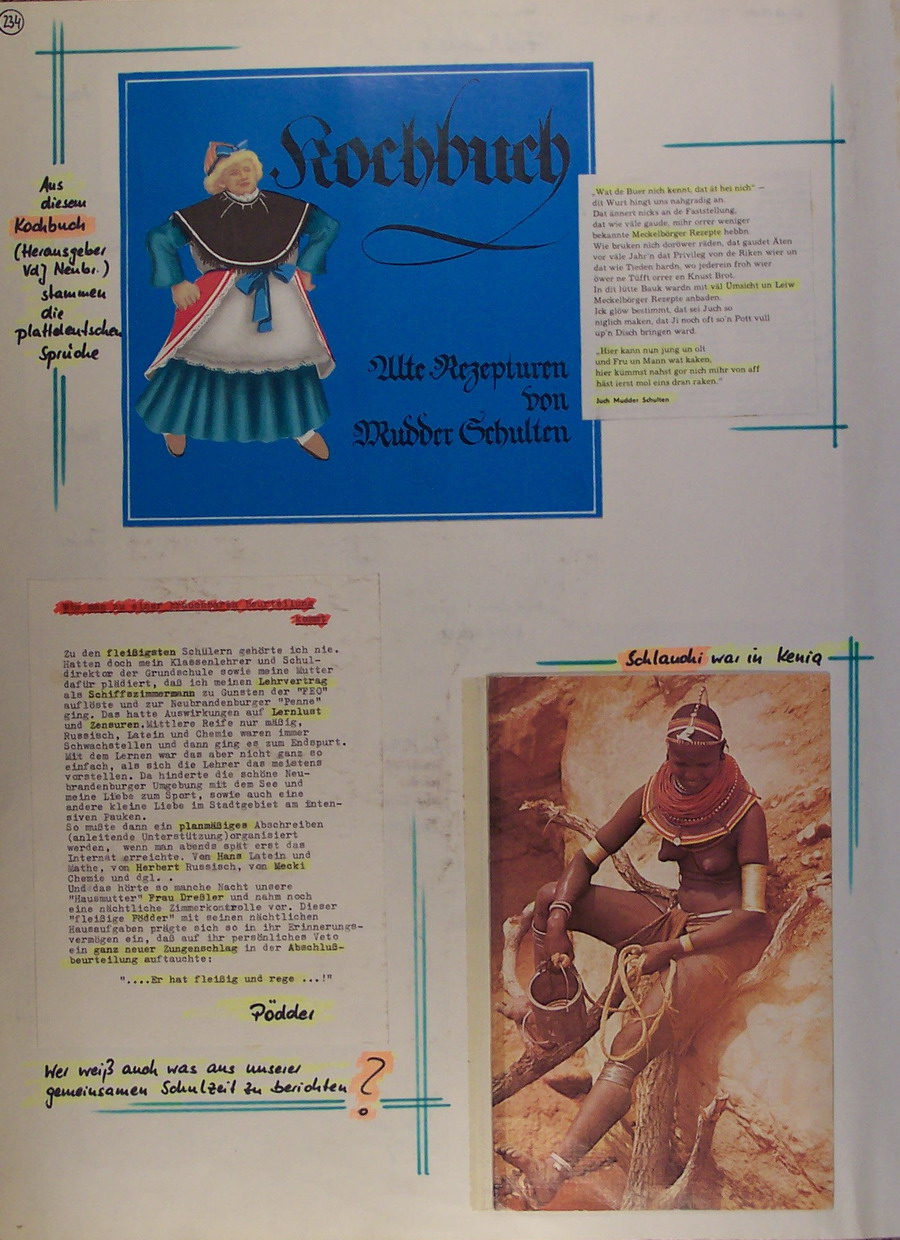 234
Aus
diesem
Kochbuch
(Herausgeber
VdJ Neubr.)
stammen
die
plattdeutschen
Sprüche
Kochbuch
Alte Rezepturen
von
Mudder Schulten
„Wat de Buer nich kennt, dat ät hei nich" —
dit Wurt hingt uns nahgradig an.
Dat ännert nicks an de Faststellung,
dat wie väle gaude, mihr orrer weniger
bekannte Meckelbörger Rezepte hebbn.
Wie bruken nich doröwer räden, dat gaudet Äten
vor väle Jahr'n dat Privileg von de Riken wier un
dat wie Tieden hardn, wo jederein froh wier
öwer ne Tüffl orrer en Knust Brot.
In dit lütte Bauk wardn mit väl Umsicht un Leiw
Meckelbörger Rezepte anbaden.
Ick glöw bestimmt, dat sei Juch so
niglich maken, dat Ji noch oft so'n Pott vull
up'n Disch bringen ward.
„Hier kann nun jung un olt
und Fru un Mann wat kaken,
hier kümmst nahst gor nich mihr von aff
häst ierst mol eins dran raken."
Juch Mudder Schulten
Wie man zu einer brauchbaren Beurteilung
kommt
Zu den fleißigsten Schülern gehörte ich nie.
Hatten doch mein Klassenlehrer und Schul-
direktor der Grundschule sowie meine Mutter
dafür plädiert, daß ich meinen Lehrvertrag
als Schiffszimmermann zu Gunsten der "FEO"
auflöste und zur Neubrandenburger "Penne"
ging. Das hatte Auswirkungen auf Lernlust
und Zensuren. Mittlere Reife nur mäßig,
Russisch, Latein und Chemie waren immer
Schwachstellen und dann ging es zum Endspurt.
Mit dem Lernen war das aber nicht ganz so
einfach, als sich die Lehrer das meistens
vorstellen. Da hinderte die schöne Neu-
brandenburger Umgebung mit dem See und
meine Liebe zum Sport, sowie auch eine
andere kleine Liebe im Stadtgebiet am inten-
siven Pauken.
So mußte dann ein planmäßiges Abschreiben
(anleitende Unterstützung)organisiert
werden, wenn man abends spät erst das
Internat erreichte. Von Hans Latein und
Mathe, von Herbert Russisch, von Mecki
Chemie und dgl. .
Und das hörte so manche Nacht unsere
"Hausmutter" Frau Dreßler und nahm noch
eine nächtliche Zimmerkontrolle vor. Dieser
"fleißige Pödder" mit seinen nächtlichen
Hausaufgaben prägte sich so in ihr Erinnerungs-
vermögen ein, daß auf ihr persönliches Veto
ein ganz neuer Zungenschlag in der Abschluß-
beurteilung auftauchte:
"....Er hat fleißig und rege ...!"
Pödder
Wer weiß auch was aus unserer
gemeinsamen Schulzeit zu berichten ?
Schlauchi war in Kenia